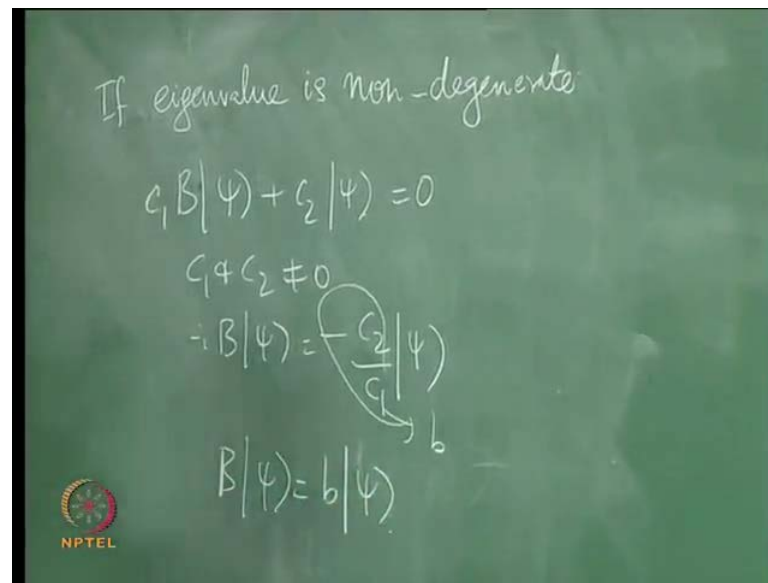 If eigenvalue is non-degenerate
c₁B|ψ) + c₂|ψ) = 0
c₁ & c₂ ≠ 0
∴ B|ψ) = -c₂/c₁|ψ)
b
B|ψ) = b|ψ)
NPTEL